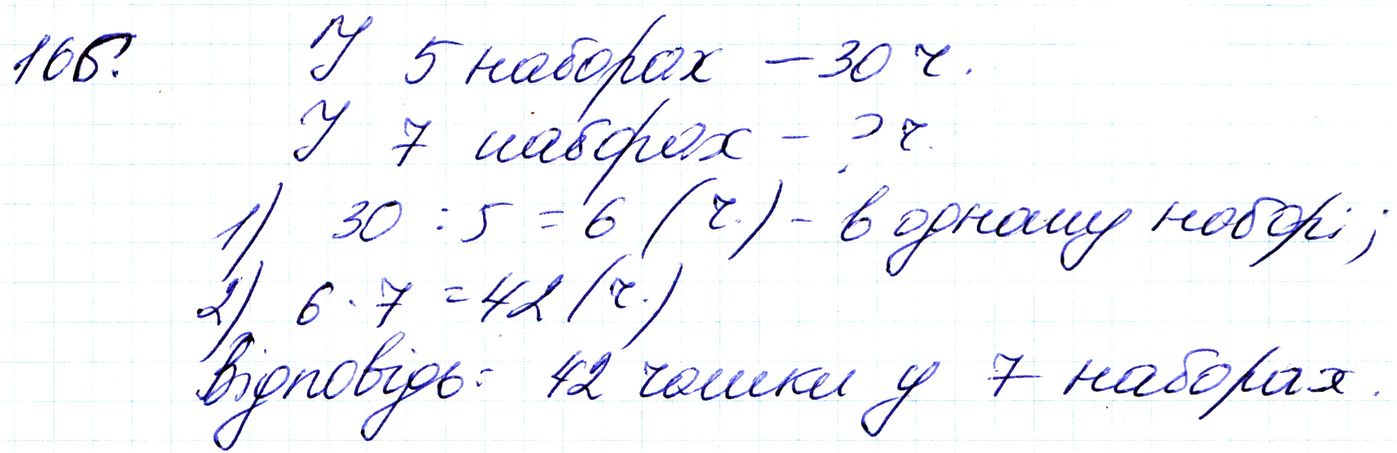 166. У 5 наборах – 30 ч.
У 7 наборах – ? ч.
1) 30 : 5 = 6 (ч.) – в одному наборі;
2) 6 · 7 = 42 (ч.)
Відповідь: 42 чашки у 7 наборах.